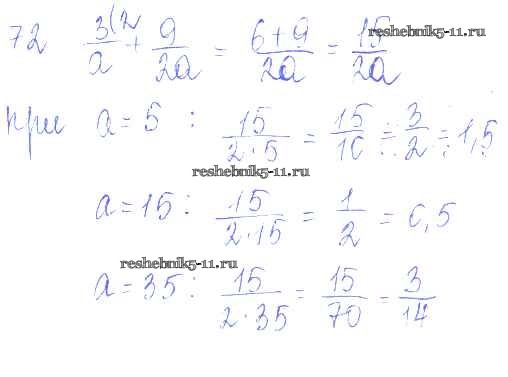 72 3(2/a + 9/2a = 6+9/2a = 15/2a
reshebnik5-11.ru
при a=5 : 15/2·5 = 15/10 = 3/2 = 1,5
reshebnik5-11.ru
a=15 : 15/2·15 = 1/2 = 0,5
reshebnik5-11.ru
a=35 : 15/2·35 = 15/70 = 3/14